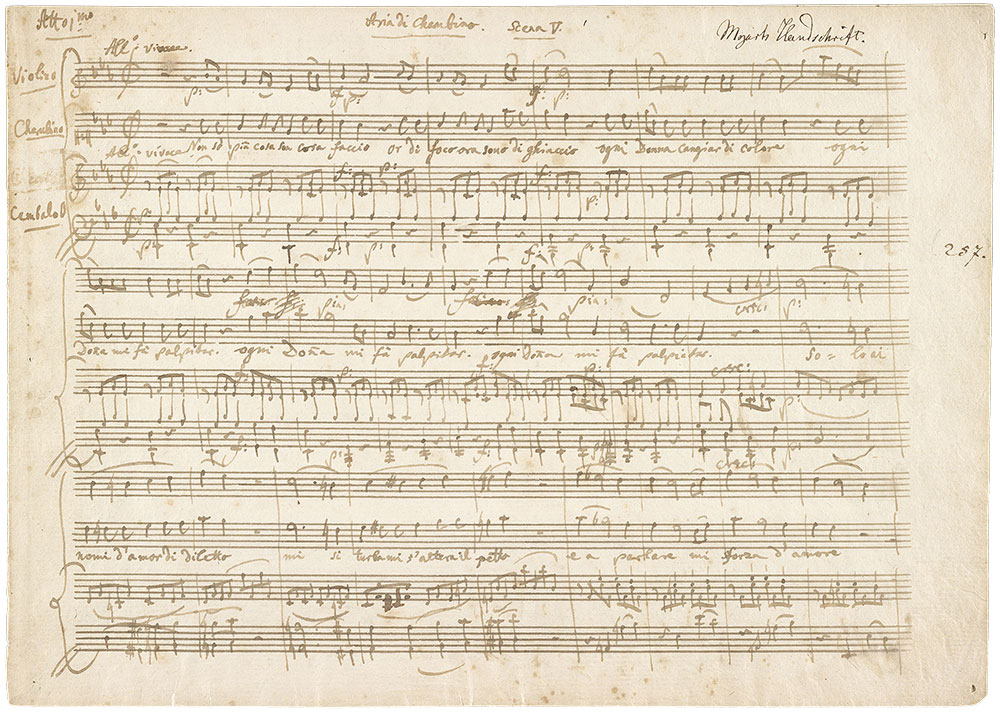 Atto 1mo Aria di Cherubino. Scena V. Mozarts Handschrift.
All:o vivace.
Violino
p: f: p: f: p:
Cherubino
Non so più cosa son cosa faccio or di foco ora sono di ghiaccio ogni Donna cangiar di colore ogni
All:o vivace
Cembalo
p: f: p: f: p:
p: f: p: f: p:
257.
pia: pia: cresc: p:
Doña mi fà palpitar. ogni Doña mi fà palpitar. ogni doña mi fà palpitar. so = lo ai
p: f: p: cresc: p:
p: f: p: cresc: p:
nomi d'amor di diletto mi si turba mi s'altera il petto e a parlare mi sforza d'amore